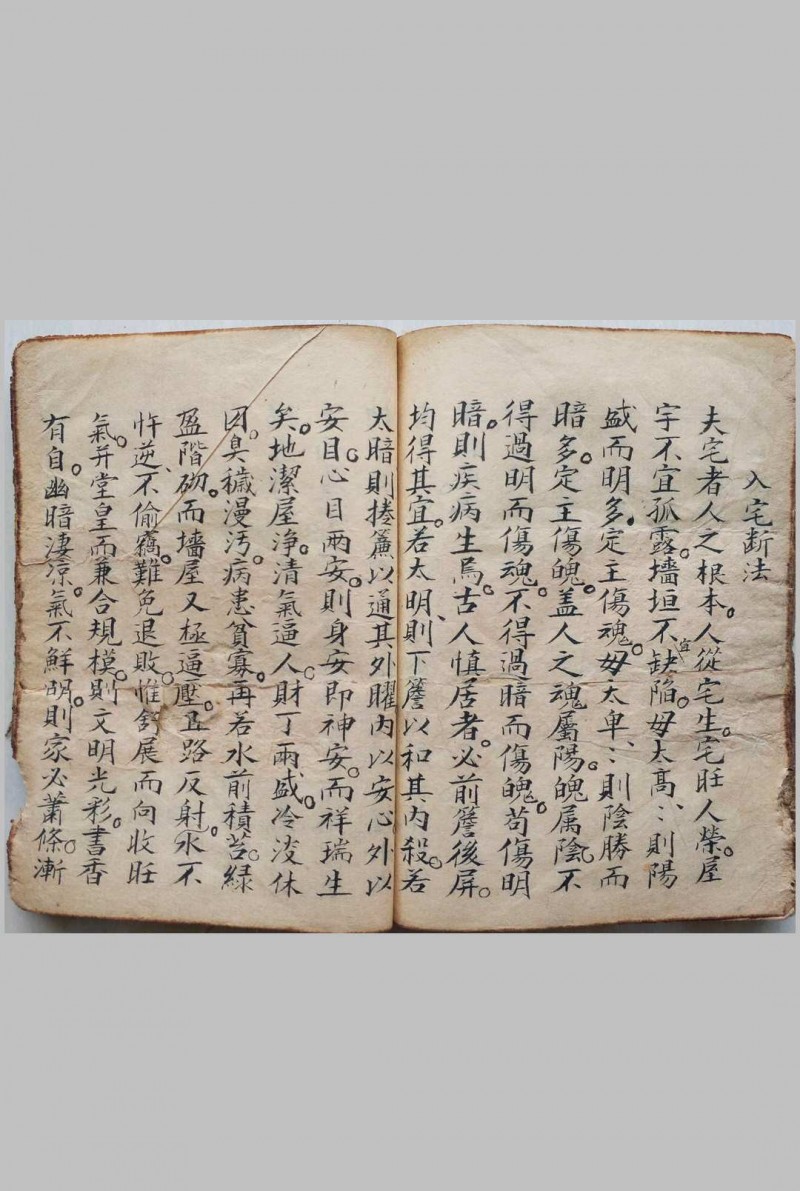 入宅断法
夫宅者人之根本。人從宅生。宅旺人榮。屋
宇不宜孤露。墻垣不宜缺陷。毋太高〻、則陽
盛而明多。定主傷魂。毋太卑、〻則陰勝而
暗多。定主傷魄。盖人之魂屬陽。魄属陰。不
得過明而傷魂。不得過暗而傷魄。苟傷明
暗。則疾病生焉。古人慎居者。必前簷後屏。
均得其宜。若太明、則下簷以和其內殺。若
太暗則捲簾以通其外曜內以安心。外以
安目。心目兩安。則身安即神安。而祥瑞生
矣。地潔屋浄。清氣逼人。財丁両盛。冷淡休
囚。臭穢漫汚。病患貧寡。再若水前積苔。緑
盈階砌。而墻屋又極逼壓。且路反射。永不
忤逆、不偷竊。難免退敗。惟舒展而向收旺
氣。并堂皇而兼合規模。則文明光彩。書香
有自。幽暗凄凉。氣不鮮明。則家必蕭條。漸